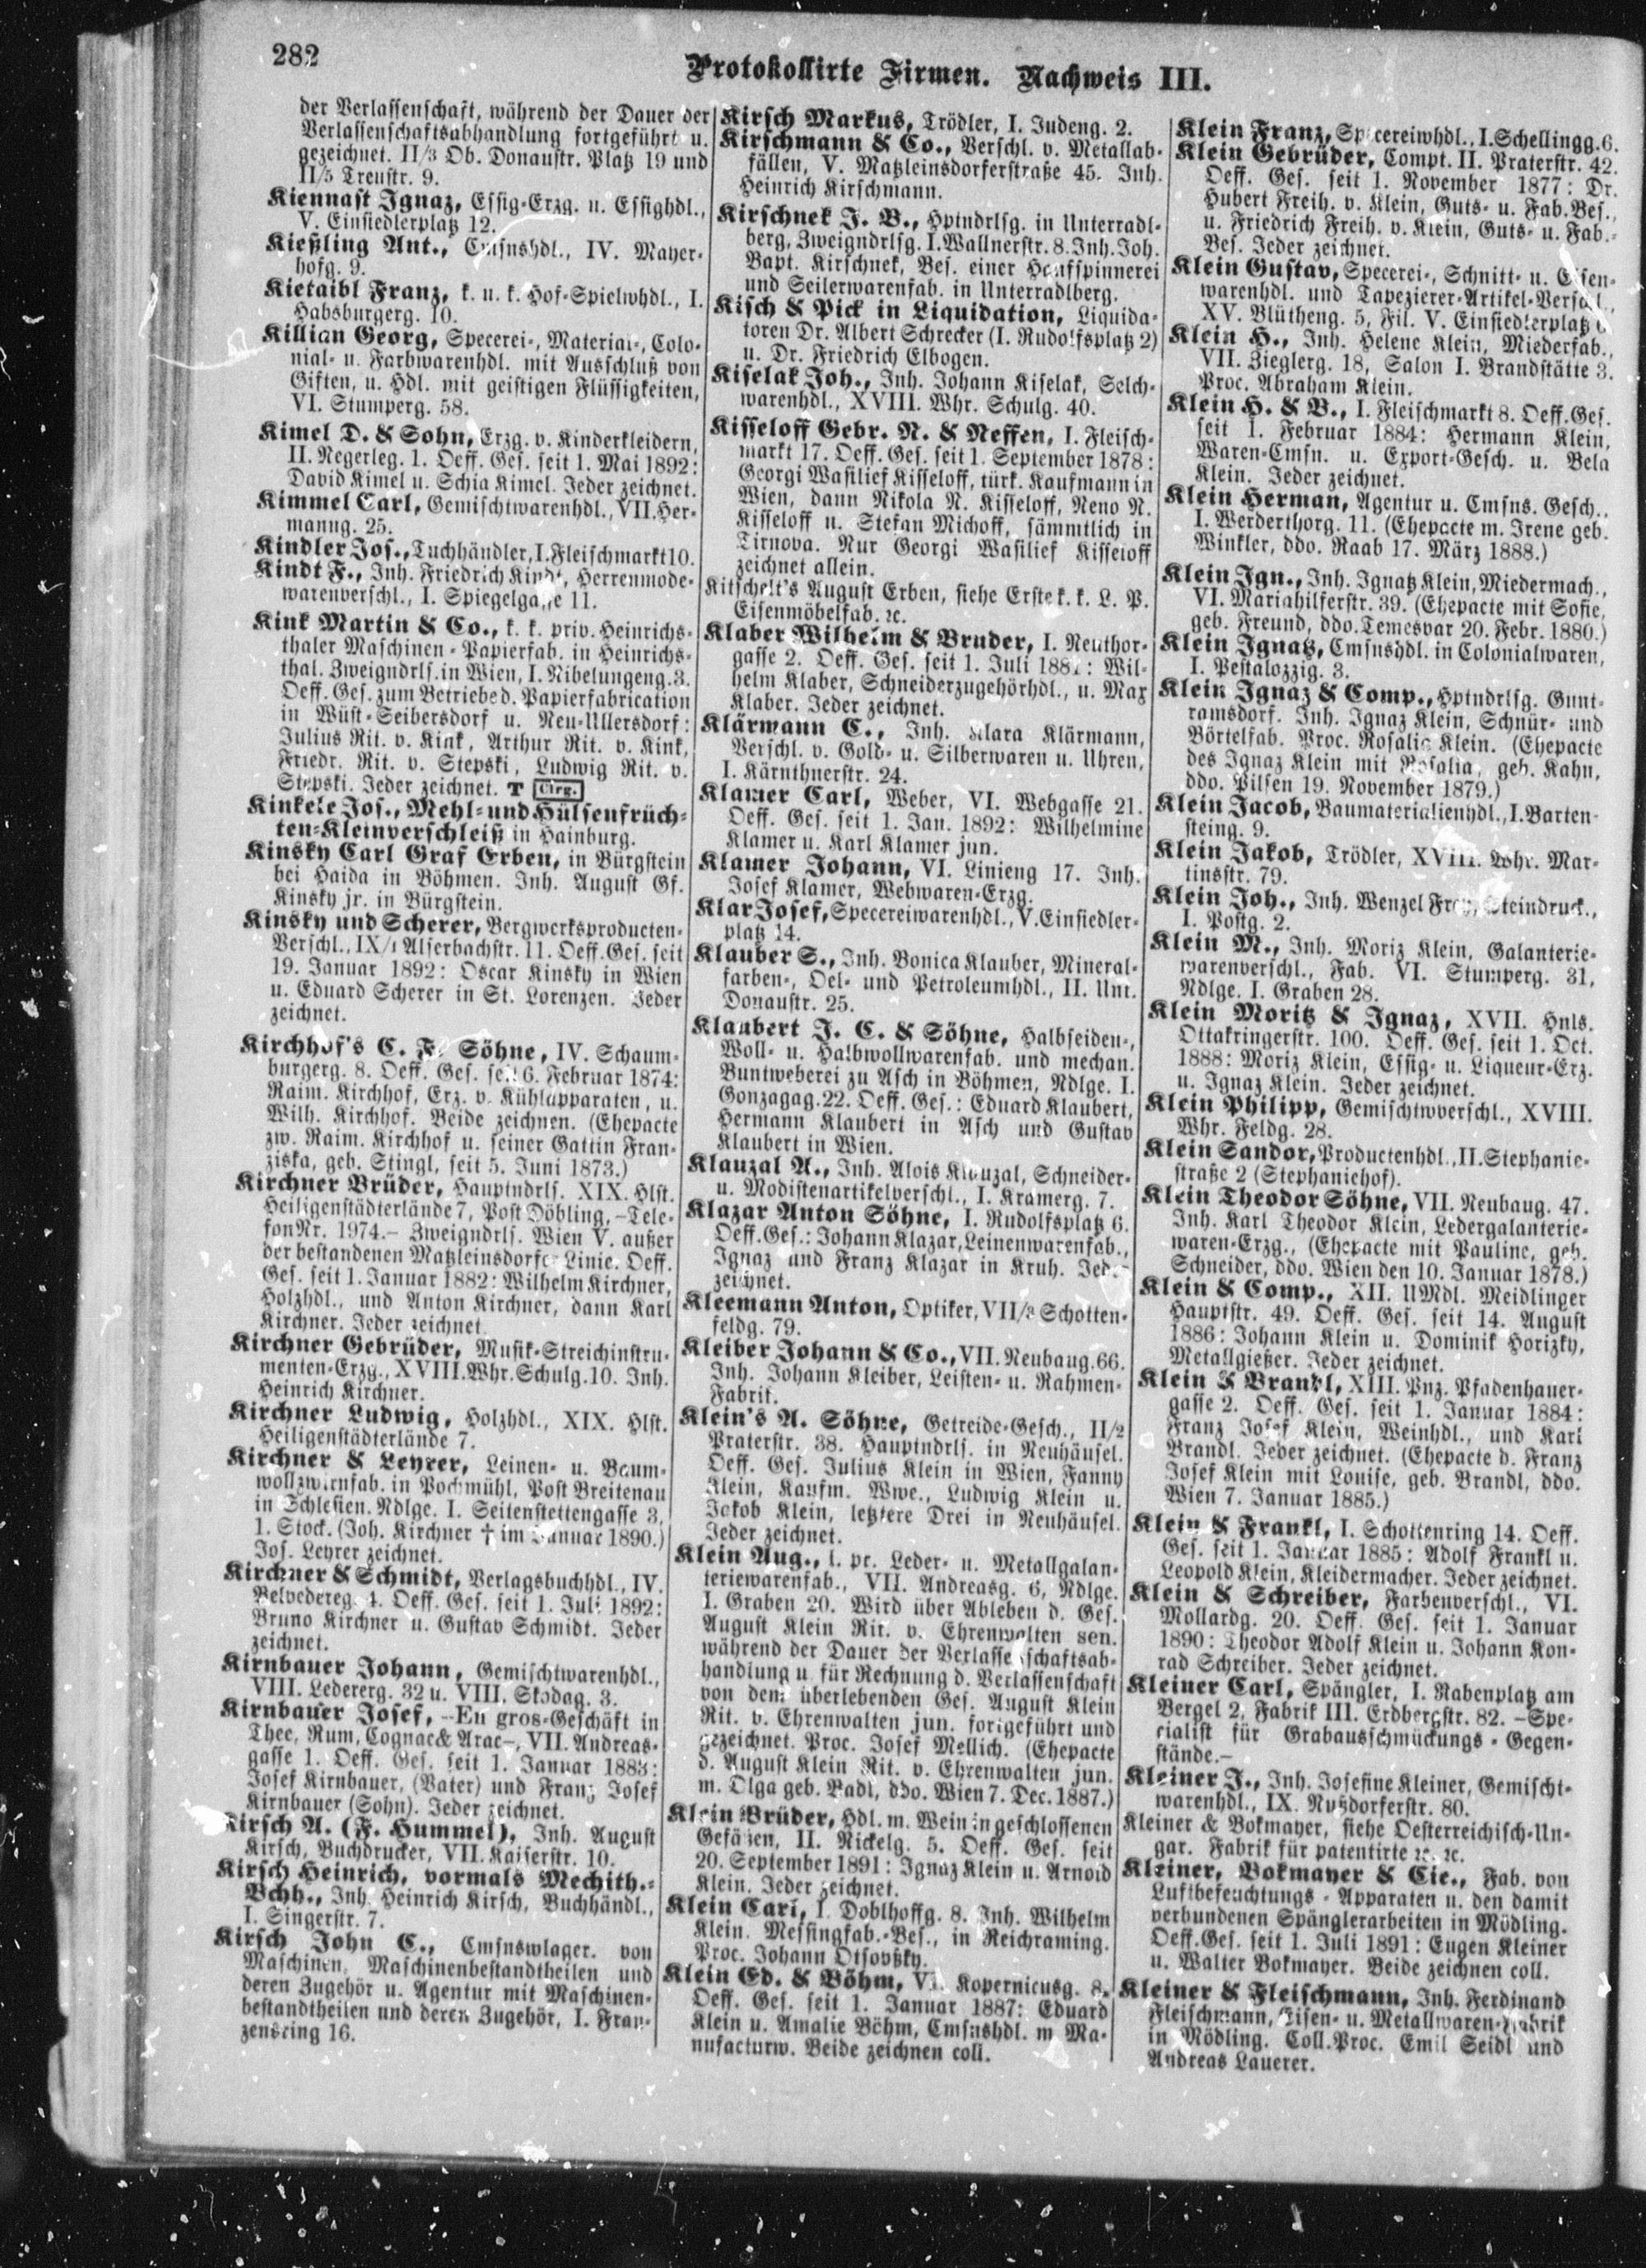 282
Protokollirte Firmen. Nachweis III.
der Verlassenschaft, während der Dauer der
Verlassenschaftsabhandlung fortgeführt u.
gezeichnet. II/3 Ob. Donaustr. Platz 19 und
II/5 Treustr. 9.
Kiennast Ignaz, Essig-Erzg. u. Essighdl.,
V. Einsiedlerplatz 12.
Kießling Ant., Cmsnshdl., IV. Mayer-
hofg. 9.
Kietaibl Franz, k. u. k. Hof-Spielwhdl., I.
Habsburgerg. 10.
Killian Georg, Specerei-, Material-, Colo-
nial- u. Farbwarenhdl. mit Ausschluß von
Giften, u. Hdl. mit geistigen Flüssigkeiten,
VI. Stumperg. 58.
Kimel D. & Sohn, Erzg. v. Kinderkleidern,
II. Negerleg. 1. Oeff. Ges. seit 1. Mai 1892:
David Kimel u. Schia Kimel. Jeder zeichnet.
Kimmel Carl, Gemischtwarenhdl., VII. Her-
manng. 25.
Kindler Jos., Tuchhändler, I. Fleischmarkt 10.
Kindt F., Inh. Friedrich Kindt, Herrenmode-
warenverschl., I. Spiegelgasse 11.
Kink Martin & Co., k. k. priv. Heinrichs-
thaler Maschinen-Papierfab. in Heinrichs-
thal. Zweigndrls. in Wien, I. Nibelungeng. 3.
Oeff. Ges. zum Betriebe d. Papierfabrication
in Wüst-Seibersdorf u. Neu-Ullersdorf:
Julius Rit. v. Kink, Arthur Rit. v. Kink,
Friedr. Rit. v. Stepski, Ludwig Rit. v.
Stepski. Jeder zeichnet. T Cirg.
Kinkele Jos., Mehl- und Hülsenfrüch-
ten-Kleinverschleiß in Hainburg.
Kinsky Carl Graf Erben, in Bürgstein
bei Haida in Böhmen. Inh. August Gf.
Kinsky jr. in Bürgstein.
Kinsky und Scherer, Bergwerksproducten-
Verschl., IX/1 Alserbachstr. 11. Oeff. Ges. seit
19. Januar 1892: Oscar Kinsky in Wien
u. Eduard Scherer in St. Lorenzen. Jeder
zeichnet.
Kirchhof's C. F. Söhne, IV. Schaum-
burgerg. 8. Oeff. Ges. seit 6. Februar 1874:
Raim. Kirchhof, Erz. v. Kühlapparaten, u.
Wilh. Kirchhof. Beide zeichnen. (Ehepacte
zw. Raim. Kirchhof u. seiner Gattin Fran-
ziska, geb. Stingl, seit 5. Juni 1873.)
Kirchner Brüder, Hauptndrls. XIX. Hlst.
Heiligenstädterlände 7, Post Döbling, –Tele-
fon Nr. 1974.– Zweigndrls. Wien V. außer
der bestandenen Matzleinsdorfer Linie. Oeff.
Ges. seit 1. Januar 1882: Wilhelm Kirchner,
Holzhdl., und Anton Kirchner, dann Karl
Kirchner. Jeder zeichnet.
Kirchner Gebrüder, Musik-Streichinstru-
menten-Erzg., XVIII. Whr. Schulg. 10. Inh.
Heinrich Kirchner.
Kirchner Ludwig, Holzhdl., XIX. Hlst.
Heiligenstädterlände 7.
Kirchner & Leyrer, Leinen- u. Baum-
wollzwirnfab. in Pochmühl, Post Breitenau
in Schlesien. Ndlge. I. Seitenstettengasse 3,
1. Stock. (Joh. Kirchner † im Januar 1890.)
Jos. Leyrer zeichnet.
Kirchner & Schmidt, Verlagsbuchhdl., IV.
Belvedereg. 4. Oeff. Ges. seit 1. Juli 1892:
Bruno Kirchner u. Gustav Schmidt. Jeder
zeichnet.
Kirnbauer Johann, Gemischtwarenhdl.,
VIII. Ledererg. 32 u. VIII. Skodag. 3.
Kirnbauer Josef, –En gros-Geschäft in
Thee, Rum, Cognac & Arac–, VII. Andreas-
gasse 1. Oeff. Ges. seit 1. Januar 1883:
Josef Kirnbauer, (Vater) und Franz Josef
Kirnbauer (Sohn). Jeder zeichnet.
Kirsch A. (F. Hummel), Inh. August
Kirsch, Buchdrucker, VII. Kaiserstr. 10.
Kirsch Heinrich, vormals Mechith.-
Bchh., Inh. Heinrich Kirsch, Buchhändl.,
I. Singerstr. 7.
Kirsch John C., Cmsnswlager. von
Maschinen, Maschinenbestandtheilen und
deren Zugehör u. Agentur mit Maschinen-
bestandtheilen und deren Zugehör, I. Fran-
zensring 16.
Kirsch Markus, Trödler, I. Judeng. 2.
Kirschmann & Co., Verschl. v. Metallab-
fällen, V. Matzleinsdorferstraße 45. Inh.
Heinrich Kirschmann.
Kirschnek J. B., Hptndrlsg. in Unterradl-
berg, Zweigndrlsg. I. Wallnerstr. 8. Inh. Joh.
Bapt. Kirschnek, Bes. einer Hanfspinnerei
und Seilerwarenfab. in Unterradlberg.
Kisch & Pick in Liquidation, Liquida-
toren Dr. Albert Schrecker (I. Rudolfsplatz 2)
u. Dr. Friedrich Elbogen.
Kiselak Joh., Inh. Johann Kiselak, Selch-
warenhdl., XVIII. Whr. Schulg. 40.
Kisseloff Gebr. N. & Neffen, I. Fleisch-
markt 17. Oeff. Ges. seit 1. September 1878:
Georgi Wasilief Kisseloff, türk. Kaufmann in
Wien, dann Nikola N. Kisseloff, Neno N.
Kisseloff u. Stefan Michoff, sämmtlich in
Tirnova. Nur Georgi Wasilief Kisseloff
zeichnet allein.
Kitschelt's August Erben, siehe Erste k. k. L. P.
Eisenmöbelfab. ꝛc.
Klaber Wilhelm & Bruder, I. Neuthor-
gasse 2. Oeff. Ges. seit 1. Juli 1881: Wil-
helm Klaber, Schneiderzugehörhdl., u. Max
Klaber. Jeder zeichnet.
Klärmann C., Inh. Klara Klärmann,
Verschl. v. Gold- u. Silberwaren u. Uhren,
I. Kärnthnerstr. 24.
Klamer Carl, Weber, VI. Webgasse 21.
Oeff. Ges. seit 1. Jan. 1892: Wilhelmine
Klamer u. Karl Klamer jun.
Klamer Johann, VI. Linieng 17. Inh.
Josef Klamer, Webwaren-Erzg.
Klar Josef, Specereiwarenhdl., V. Einsiedler-
platz 14.
Klauber S., Inh. Bonica Klauber, Mineral-
farben-, Oel- und Petroleumhdl., II. Unt.
Donaustr. 25.
Klaubert J. C. & Söhne, Halbseiden-,
Woll- u. Halbwollwarenfab. und mechan.
Buntweberei zu Asch in Böhmen, Ndlge. I.
Gonzagag. 22. Oeff. Ges.: Eduard Klaubert,
Hermann Klaubert in Asch und Gustav
Klaubert in Wien.
Klauzal A., Inh. Alois Klauzal, Schneider-
u. Modistenartikelverschl., I. Kramerg. 7.
Klazar Anton Söhne, I. Rudolfsplatz 6.
Oeff. Ges.: Johann Klazar, Leinenwarenfab.,
Ignaz und Franz Klazar in Kruh. Jeder
zeichnet.
Kleemann Anton, Optiker, VII/3 Schotten-
feldg. 79.
Kleiber Johann & Co., VII. Neubaug. 66.
Inh. Johann Kleiber, Leisten- u. Rahmen-
Fabrik.
Klein's A. Söhne, Getreide-Gesch., II/2
Praterstr. 38. Hauptndrls. in Neuhäusel.
Oeff. Ges. Julius Klein in Wien, Fanny
Klein, Kaufm. Wwe., Ludwig Klein u.
Jakob Klein, letztere Drei in Neuhäusel.
Jeder zeichnet.
Klein Aug., l. pr. Leder- u. Metallgalan-
teriewarenfab., VII. Andreasg. 6, Ndlge.
I. Graben 20. Wird über Ableben d. Ges.
August Klein Rit. v. Ehrenwalten sen.
während der Dauer der Verlassenschaftsab-
handlung u. für Rechnung d. Verlassenschaft
von dem überlebenden Ges. August Klein
Rit. v. Ehrenwalten jun. fortgeführt und
gezeichnet. Proc. Josef Mellich. (Ehepacte
d. August Klein Rit. v. Ehrenwalten jun.
m. Olga geb. Padl, ddo. Wien 7. Dec. 1887.)
Klein Brüder, Hdl. m. Wein in geschlossenen
Gefäßen, II. Nickelg. 5. Oeff. Ges. seit
20. September 1891: Ignaz Klein u. Arnold
Klein. Jeder zeichnet.
Klein Carl, I. Doblhoffg. 8. Inh. Wilhelm
Klein. Messingfab.-Bes., in Reichraming.
Proc. Johann Otsovßky.
Klein Ed. & Böhm, VI. Kopernicusg. 8.
Oeff. Ges. seit 1. Januar 1887: Eduard
Klein u. Amalie Böhm, Cmsnshdl. m. Ma-
nufacturw. Beide zeichnen coll.
Klein Franz, Specereiwhdl., I. Schellingg. 6.
Klein Gebrüder, Compt. II. Praterstr. 42.
Oeff. Ges. seit 1. November 1877: Dr.
Hubert Freih. v. Klein, Guts- u. Fab. Bes.,
u. Friedrich Freih. v. Klein, Guts- u. Fab.-
Bes. Jeder zeichnet.
Klein Gustav, Specerei-, Schnitt- u. Eisen-
warenhdl. und Tapezierer-Artikel-Verschl.,
XV. Blütheng. 5, Fil. V. Einsiedlerplatz
Klein H., Inh. Helene Klein, Miederfab.,
VII. Zieglerg. 18, Salon I. Brandstätte 3.
Proc. Abraham Klein.
Klein H. & B., I. Fleischmarkt 8. Oeff. Ges.
seit 1. Februar 1884: Hermann Klein,
Waren-Cmsn. u. Export-Gesch. u. Bela
Klein. Jeder zeichnet.
Klein Herman, Agentur u. Cmsns. Gesch.,
I. Werderthorg. 11. (Ehepacte m. Irene geb.
Winkler, ddo. Raab 17. März 1888.)
Klein Ign., Inh. Ignatz Klein, Miedermach.,
VI. Mariahilferstr. 39. (Ehepacte mit Sofie,
geb. Freund, ddo. Temesvar 20. Febr. 1880.)
Klein Ignatz, Cmsnshdl. in Colonialwaren,
I. Pestalozzig. 3.
Klein Ignaz & Comp., Hptndrlsg. Gunt-
ramsdorf. Inh. Ignaz Klein, Schnür- und
Börtelfab. Proc. Rosalia Klein. (Ehepacte
des Ignaz Klein mit Rosalia, geb. Kahn,
ddo. Pilsen 19. November 1879.)
Klein Jacob, Baumaterialienhdl., I. Barten-
steing. 9.
Klein Jakob, Trödler, XVIII. Whr. Mar-
tinsstr. 79.
Klein Joh., Inh. Wenzel Frey, Steindruck.,
I. Postg. 2.
Klein M., Inh. Moriz Klein, Galanterie-
warenverschl., Fab. VI. Stumperg. 31,
Ndlge. I. Graben 28.
Klein Moritz & Ignaz, XVII. Hnls.
Ottakringerstr. 100. Oeff. Ges. seit 1. Oct.
1888: Moriz Klein, Essig- u. Liqueur-Erz.
u. Ignaz Klein. Jeder zeichnet.
Klein Philipp, Gemischtwverschl., XVIII.
Whr. Feldg. 28.
Klein Sandor, Productenhdl., II. Stephanie-
straße 2 (Stephaniehof).
Klein Theodor Söhne, VII. Neubaug. 47.
Inh. Karl Theodor Klein, Ledergalanterie-
waren-Erzg., (Ehepacte mit Pauline, geb.
Schneider, ddo. Wien den 10. Januar 1878.)
Klein & Comp., XII. UMdl. Meidlinger
Hauptstr. 49. Oeff. Ges. seit 14. August
1886: Johann Klein u. Dominik Horizky,
Metallgießer. Jeder zeichnet.
Klein & Brandl, XIII. Pnz. Pfadenhauer-
gasse 2. Oeff. Ges. seit 1. Januar 1884:
Franz Josef Klein, Weinhdl., und Karl
Brandl. Jeder zeichnet. (Ehepacte d. Franz
Josef Klein mit Louise, geb. Brandl, ddo.
Wien 7. Januar 1885.)
Klein & Frankl, I. Schottenring 14. Oeff.
Ges. seit 1. Januar 1885: Adolf Frankl u.
Leopold Klein, Kleidermacher. Jeder zeichnet.
Klein & Schreiber, Farbenverschl., VI.
Mollardg. 20. Oeff. Ges. seit 1. Januar
1890: Theodor Adolf Klein u. Johann Kon-
rad Schreiber. Jeder zeichnet.
Kleiner Carl, Spängler, I. Rabenplatz am
Bergel 2, Fabrik III. Erdbergstr. 82. –Spe-
cialist für Grabausschmückungs-Gegen-
stände.–
Kleiner J., Inh. Josefine Kleiner, Gemischt-
warenhdl., IX. Nußdorferstr. 80.
Kleiner & Bokmayer, siehe Oesterreichisch-Un-
gar. Fabrik für patentirte ꝛc. ꝛc.
Kleiner, Bokmayer & Cie., Fab. von
Luftbefeuchtungs-Apparaten u. den damit
verbundenen Spänglerarbeiten in Mödling.
Oeff. Ges. seit 1. Juli 1891: Eugen Kleiner
u. Walter Bokmayer. Beide zeichnen coll.
Kleiner & Fleischmann, Inh. Ferdinand
Fleischmann, Eisen- u. Metallwaren-Fabrik
in Mödling. Coll. Proc. Emil Seidl und
Andreas Lauerer.